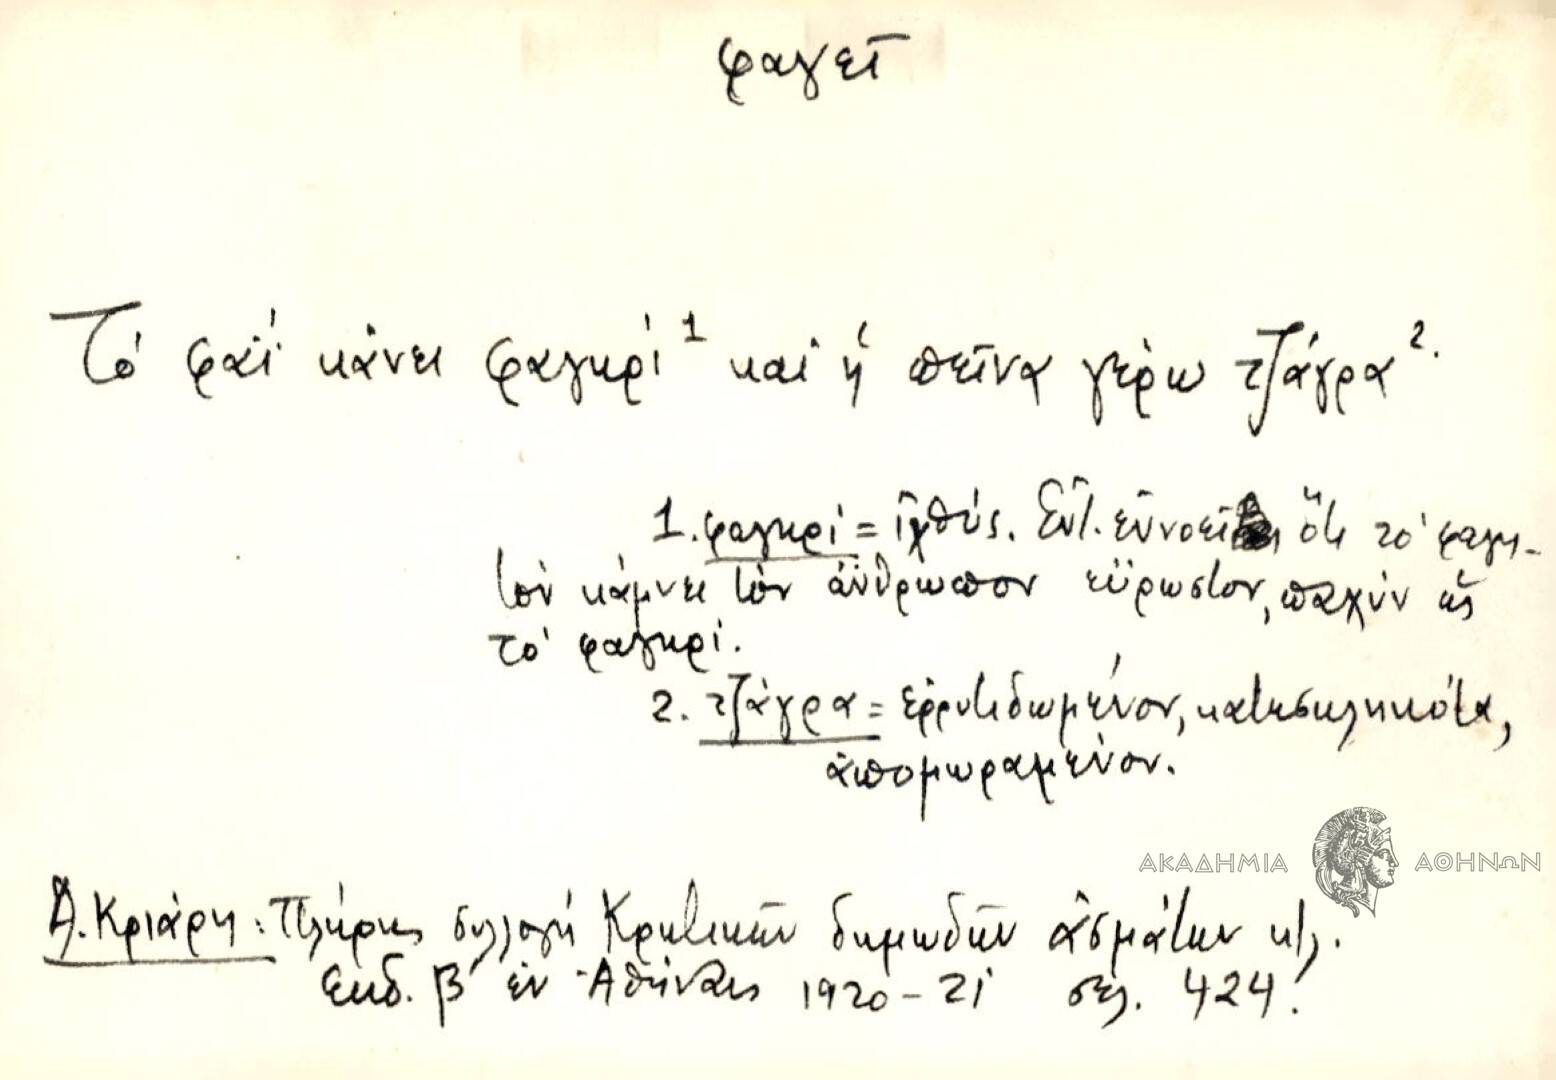 φαγεῖ
Τό φαΐ κάνει φαγκρί¹ καί ἡ πεῖνα γέρω τζάγρα².
1. φαγκρί = ἰχθύς. Ἐντ. ἐννοεῖ ὅτι τό φαγη-
τόν κάμνει τόν ἄνθρωπον εὔρωστον, παχύν ὡς
τό φαγκρί.
2. τζάγρα = ἐρρυτιδωμένον, κατεσκληκότα,
ἀπομωραμένον.
Ἀ. Κριάρη: Πλήρης συλλογή Κρητικῶν δημωδῶν ᾀσμάτων κτλ.
Ἐκδ. β' ἐν Ἀθήναις 1920-21 σελ. 424.
ΑΚΑΔΗΜΙΑ ΑΘΗΝΩΝ